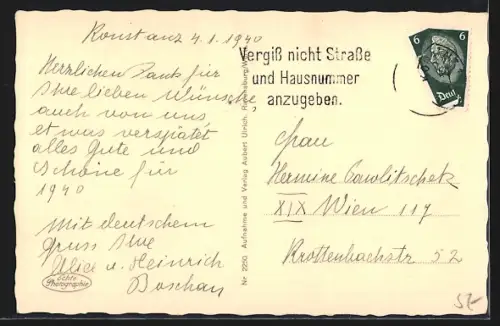 Konstanz 4.1.1940
Herzlichen Dank für
Ihre lieben Wünsche,
auch von uns
etwas verspätet
alles Gute und
Schöne für
1940
Mit deutschem
Gruss Ihre
Alice u. Heinrich
Boschan
echte
Photographie
Nr. 2250 Aufnahme und Verlag Aubert Ulrich,
Vergiß nicht Straße
und Hausnummer
anzugeben.
6 6
Frau
Hermine Cawlitschek
XIX Wien 117
Krottenbachstr 52